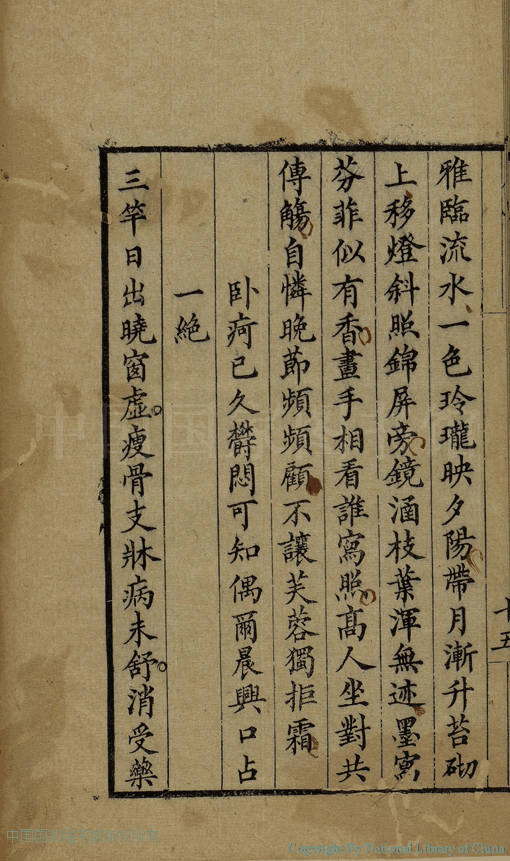 雅臨流水一色玲瓏映夕陽帶月漸升苔砌
上移燈斜照錦屏旁鏡涵枝葉渾無迹墨寫
芬菲似有香畫手相看誰寫照高人坐對共
傳觴自憐晚節頻頻顧不讓芙蓉獨拒霜
臥疴已久欝悶可知偶爾晨興口占
一絕
三竿日出曉窗虛瘦骨支牀病未舒消受藥
十五
Copyright by National Library of China